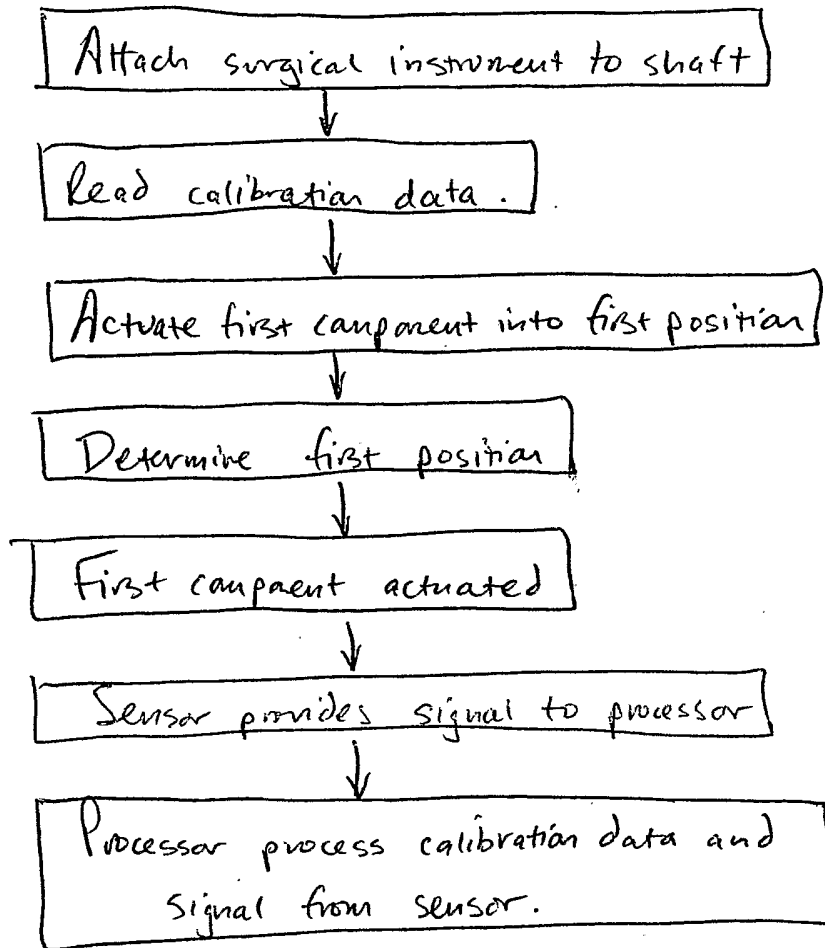 Attach surgical instrument to shaft
Read calibration data.
Actuate first component into first position
Determine first position
First component actuated
Sensor provides signal to processor
Processor process calibration data and
signal from sensor.